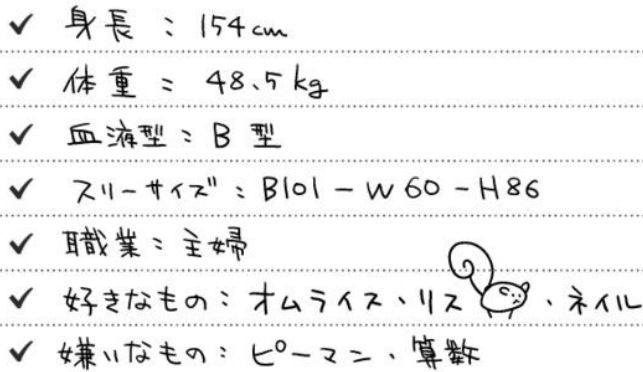 ✓ 身長：154cm
✓ 体重：48.5kg
✓ 血液型：B型
✓ スリーサイズ：B101-W60-H86
✓ 職業：主婦
✓ 好きなもの：オムライス、リス、ネイル
✓ 嫌いなもの：ピーマン、算数